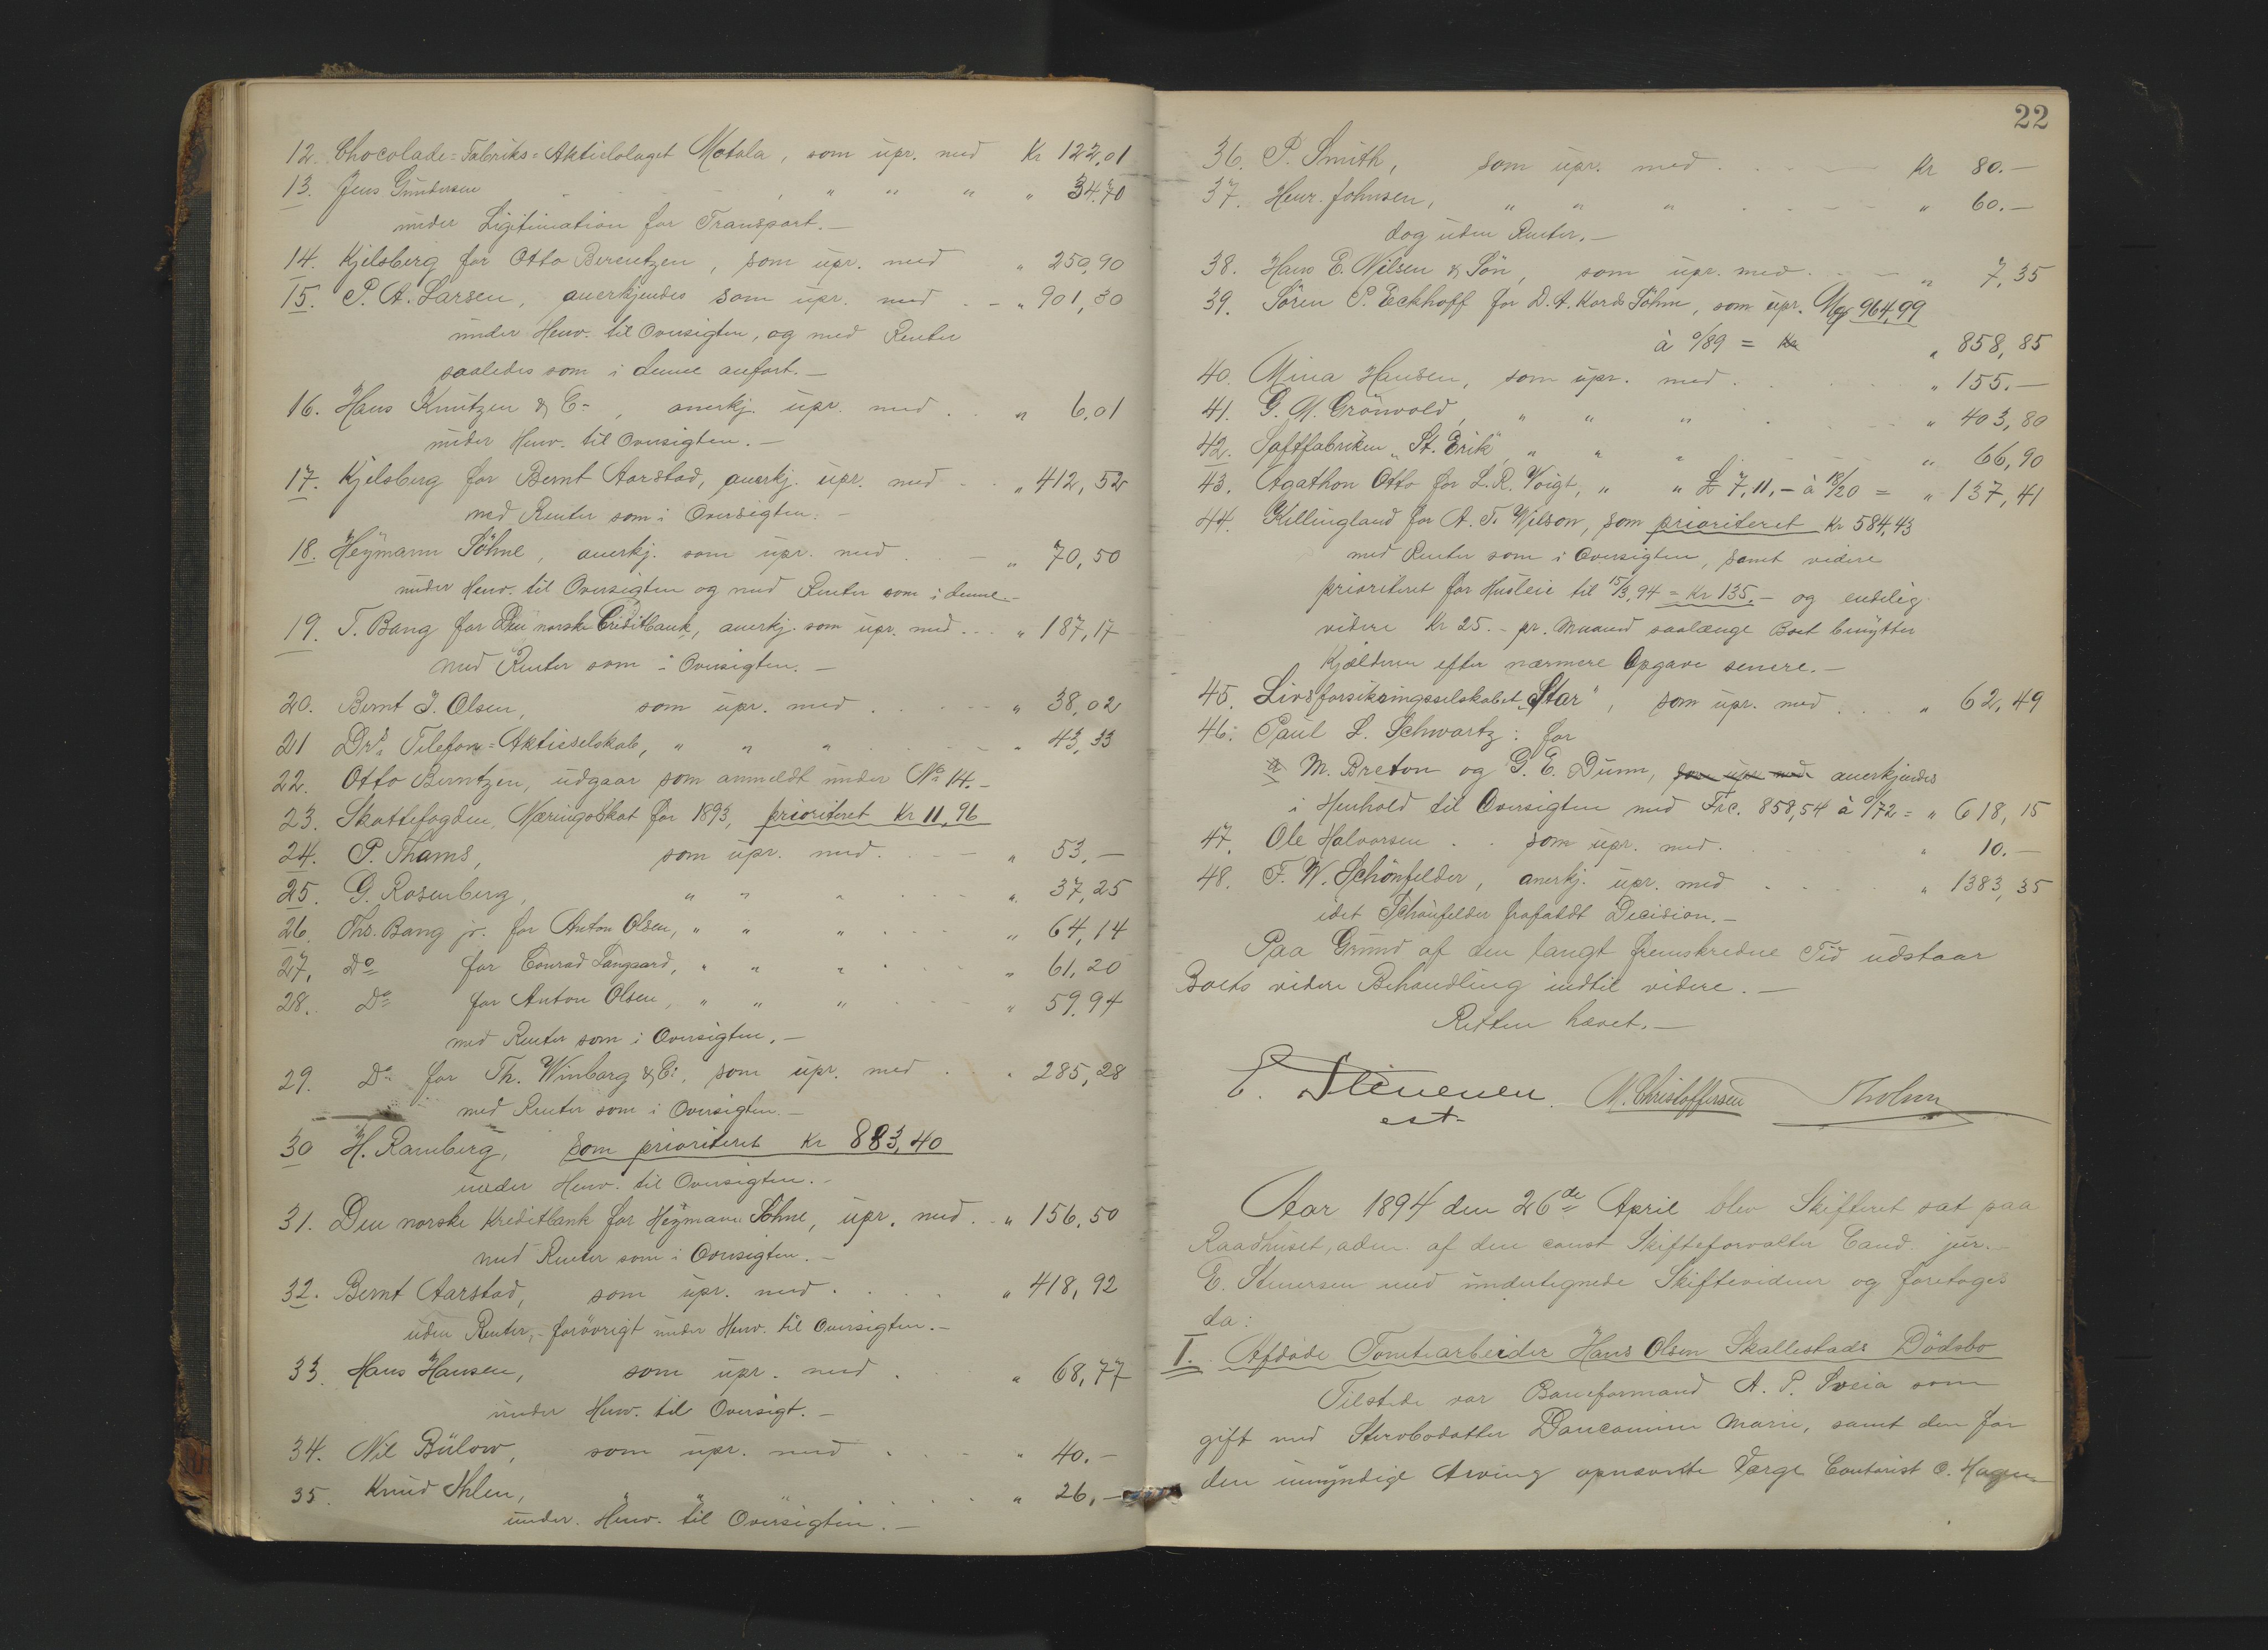 12. Chocolade=Fabriks=Aktiebolaget Motala, som upr. med Kr 122,01
13. Jens Gundersen , " " " " 34.70
under Ligitimation for Transport.—
14. Kjelsberg for Otto Berentzen, som upr. med " 250,90
15. P. A. Larsen, anerkjendes som upr. med . – " 901,30
under Henv. til Oversigten, og med Renter
saaledes som i denne anført.—
16. Hans Knutzen & Co, anerkj. upr. med . . " 6,01
under Henv. til Oversigten.—
17. Kjelsberg for Bernt Aarstad, anerkj. upr. med . . " 412,52
med Renter som i Oversigten.—
18. Heymann Söhne, anerkj. som upr. med . – " 70,50
under Henv. til Oversigten og med Renter som i denne.–
19. T. Bang for Den norske Creditbank, anerkj. som upr. med . . . " 187,17
med Renter som i Oversigten.—
20. Bernt J. Olsen, som upr. med . . . . " 38,02
21 Telefon=Aktieselskab, " " " . . . " 43,33
22. Otto Berntzen, udgaar som anmeldt under No 14.–
23. Skattefogden, Næringsskat for 1893, prioriteret Kr 11,96
24. P. Thams, som upr. med . . . " 53.—
25. G. Rosenberg, " " " . . . " 37,25
26. Ths. Bang jr. for Anton Olsen, " " " . . . " 64,14
27. Do for Conrad Langaard, " " " . . . " 61,20
28. Do for Anton Olsen, " " " . . . " 59,94
med Renter som i Oversigten.—
29. Do for Th. Winborg & Co, som upr. med . . 285,28
med Renter som i Oversigten.—
30 H. Ramberg, som prioriteret Kr 883,40
under Henv. til Oversigten.–
31. Den norske Kreditbank for Heymann Söhne, upr. med . . " 156,50
med Renter som i Oversigten.—
32. Bernt Aarstad, som upr. med . . . " 418,92
uden Renter,– forövrigt under Henv. til Oversigten.—
33. Hans Hansen, som upr. med . . " 68,77
under Henv. til Oversigt.—
34. Nil Bülow, som upr. med . . . " 40.–
35. Knud Ihlen, " " " . . . " 26.—
under Henv. til Oversigten.—
22
36. P. Smith, som upr. med . . . — Kr 80.—
37. Henr. Johnsen, " " " . . . " 60.—
dog uden Renter.—
38. Hans E. Nilsen & Søn, som upr. med . . — " 7,35
39. Sören P. Eckhoff for D. A. Kords Söhne, som upr. Mk 964,99
à 0/89 = Kr " 858,85
40. Mina Hansen, som upr. med . . . " 155.—
41. G. A. Grönvold, " " " . . . " 403,80
42. Saftfabriken "St. Erik", " " " . . . " 66,90
43. Agathon Otto for L. R. Voigt, " " £ 7,11,– à 18/20 = " 137,41
44. Killingland for A. T. Wilson, som prioriteret Kr 584,43
med Renter som i Oversigten, samt videre
prioriteret for Husleie til 15/3,94 = Kr 135.– og endelig
videre Kr 25.– pr. Maaned saalænge Boet benytter
Kjælderen efter nærmere Opgave senere.—
45. Livsforsikringsselskabet "Star", som upr. med . . . " 62,49
46. Paul L. Schwartz: for
a M. Breton og G. E. Dunn, som upr. med anerkjendes
i Henhold til Oversigten med Frc. 858,54 à 0/72 = " 618,15
47. Ole Halvorsen . . som upr. med . . . " 10.—
48. F. W. Schönfelder, anerkj. upr. med . . . " 1383,35
idet Schönfelder frafaldt Decision.—
Paa Grund af den langt fremskredne Tid udstaar
Boets videre Behandling indtil videre.—
Retten hævet.—
E. Stenersen. M. Christoffersen Tholm
cst.
Aar 1894 den 26de April blev Skifteret sat paa
Raadhuset, adm. af den const Skifteforvalter Cand. jur.
E. Stenersen med undertegnede Skiftevidner og foretoges
da:
I. Afdøde Tomtearbeider Hans Olsen Skallestads Dödsbo
Tilstede var Baneformand A. P. Sveia som
gift med Stervbodatter Marie, samt den for
den umyndige Arving opnævnte Værge Contorist O. Hagen